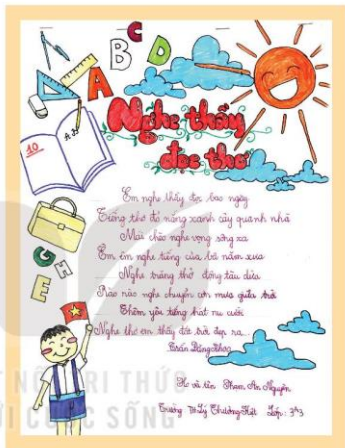 B C D
A
10
A B
Nghe thầy
đọc thơ
Em nghe thầy đọc bao ngày
Tiếng thơ đỏ nắng xanh cây quanh nhà
Mái chèo nghe vọng sông xa
Êm êm nghe tiếng của bà năm xưa
Nghe trăng thở động tàu dừa
Rào rào nghe chuyển cơn mưa giữa trời
Thêm yêu tiếng hát nụ cười
Nghe thơ em thấy đất trời đẹp ra...
Trần Đăng Khoa
G H
E
Họ và tên Phạm An Nguyên
Trường TH Lý Thường Kiệt Lớp: 3A3
TRI THỨC
CUỘC SỐNG